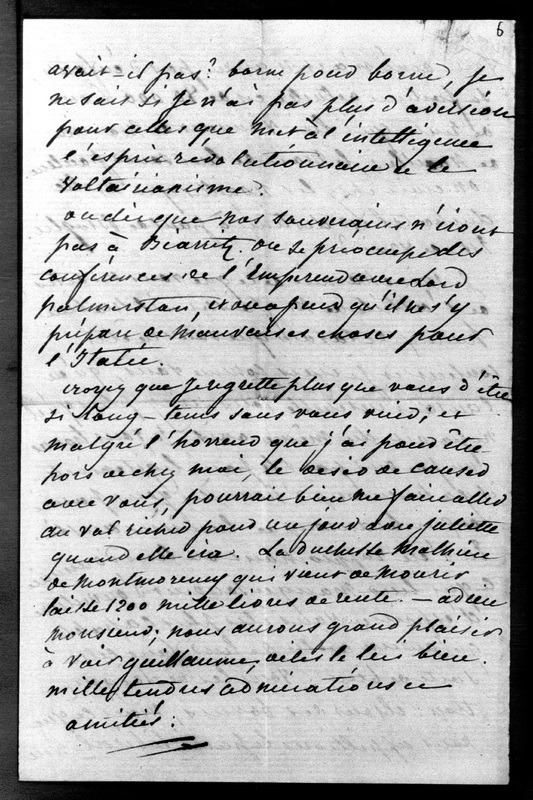 6
avait-il pas? borne pour borne, je
ne sais si je n'ai pas plus d'aversion
pour celles que met à l'intelligence
l'esprit révolutionnaire et le
Voltairianisme.
on dit que nos souverains n'iront
pas à Biarritz. on se préoccupe des
conférences de l'Empereur avec Lord
palmerston, et on a peur qu'il ne s'y
prépare de mauvaises choses pour
l'Italie.
croyez que je regrette plus que vous d'être
si long-tems sans vous voir; et
malgré l'horreur que j'ai pour être
hors de chez moi, le désir de causer
avec vous, pourrait bien me faire aller
au val richer pour un jour avec juliette
quand elle ira. La duchesse Mathieu
de Montmorency qui vient de mourir
laisse 1200 mille livres de rente. — adieu
Monsieur; nous aurons grand plaisir
à voir guillaume, dites le lui bien.
mille tendres admirations et
amitiés.